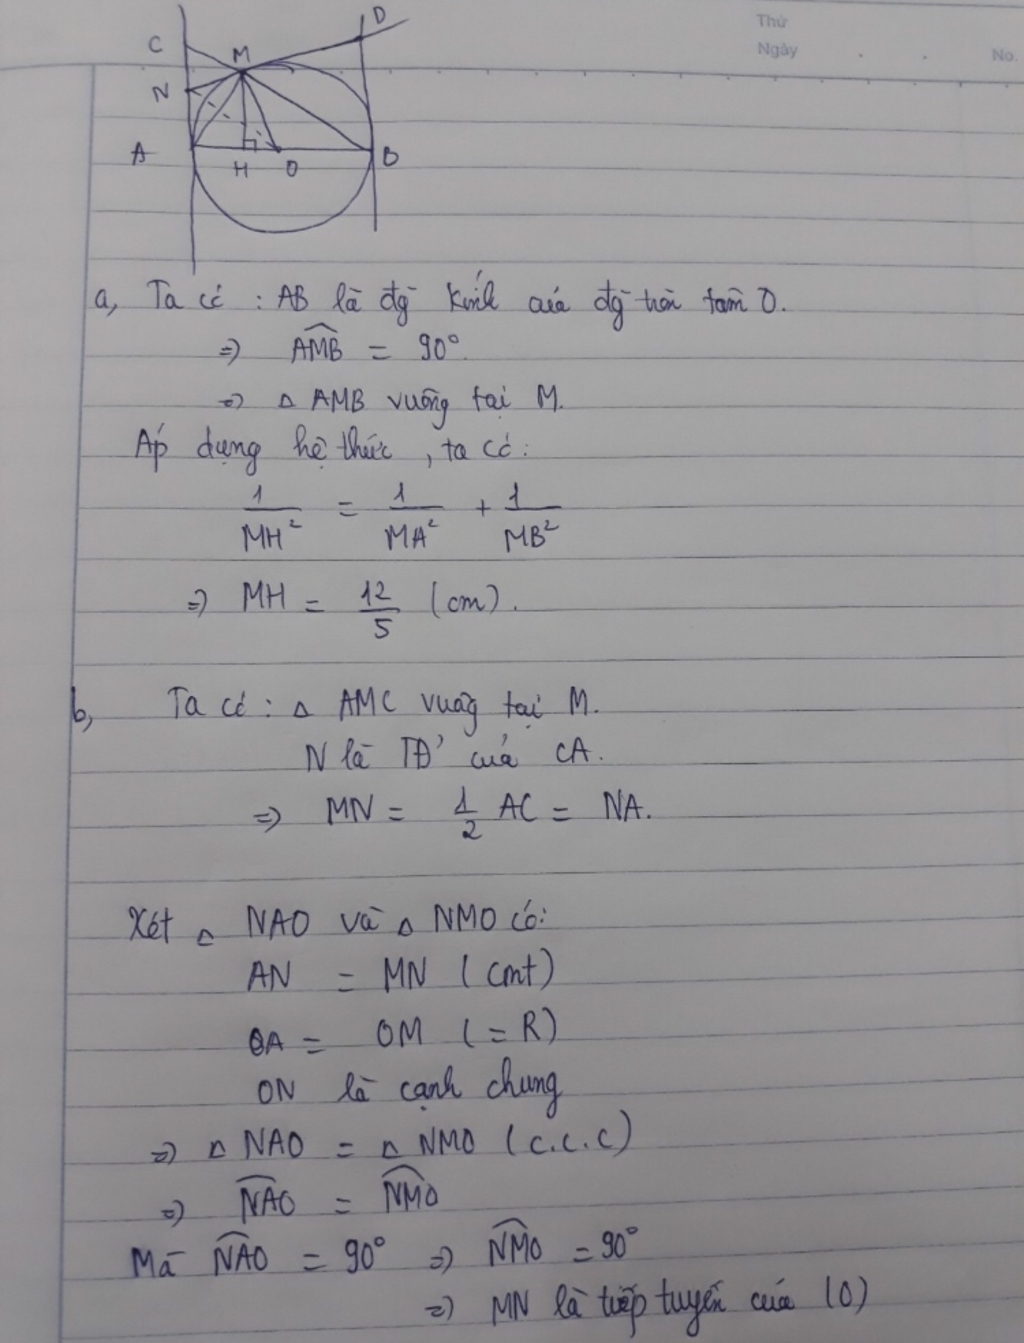 Thứ
Ngày . . No.
C M D
N
A H O B
a, Ta có : AB là đg kính của đg tròn tâm O.
=> AMB = 90°.
=> △ AMB vuông tại M.
Áp dụng hệ thức , ta có :
1/MH² = 1/MA² + 1/MB²
=> MH = 12/5 (cm).
b, Ta có : △ AMC vuông tại M.
N là TĐ' của CA.
=> MN = 1/2 AC = NA.
Xét △ NAO và △ NMO có:
AN = MN ( cmt)
OA = OM ( = R)
ON là cạnh chung
=> △ NAO = △ NMO ( c.c.c)
=> NAO = NMO
Mà NAO = 90° => NMO = 90°
=> MN là tiếp tuyến của (O)